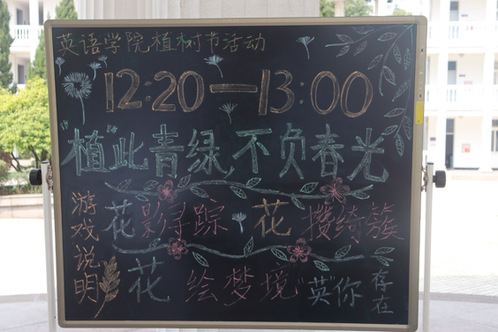 英语学院植树节活动
12:20—13:00
“植”此青绿,不负春光
游戏说明
花影寻踪 花攒绮簇
花绘梦境 “英”你存在